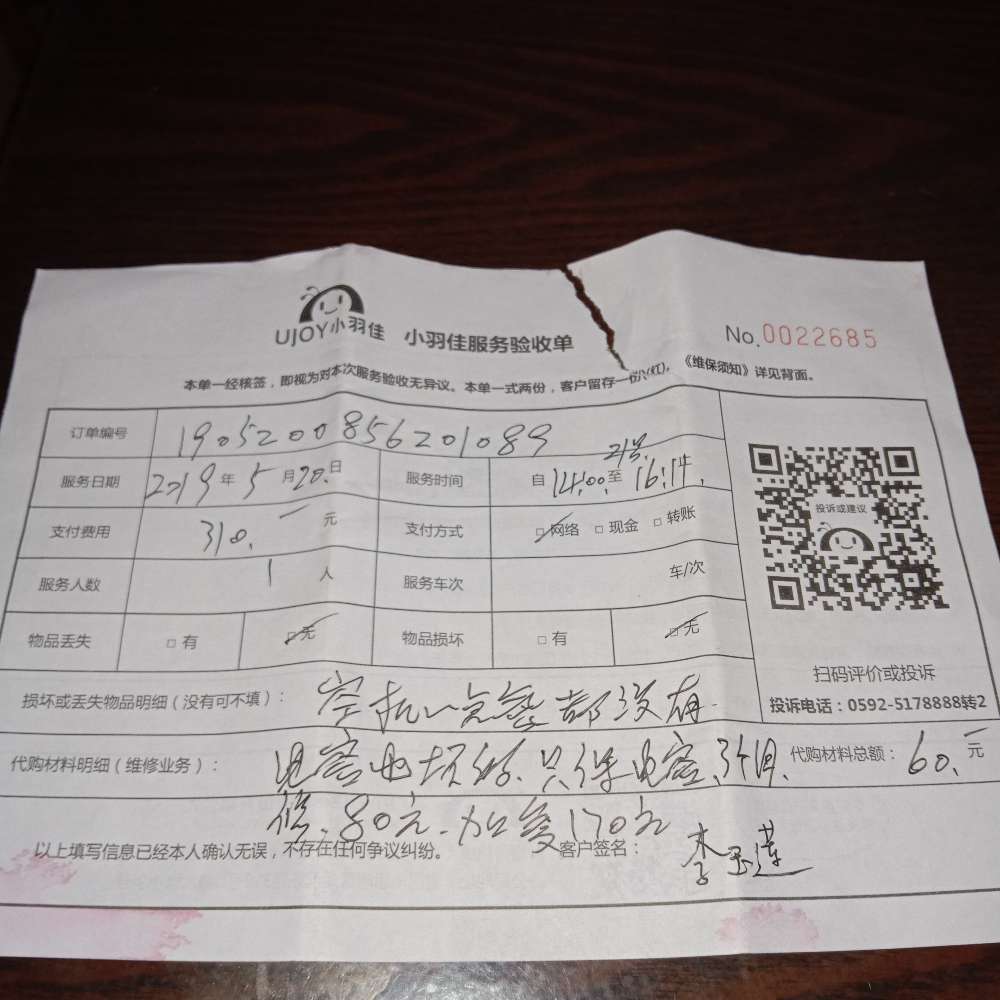 UJOY小羽佳 小羽佳服务验收单 No.0022685
本单一经核签，即视为对本次服务验收无异议。本单一式两份，客户留存一份(红)。《维保须知》详见背面。
订单编号 1905200856201089
服务日期 2019年5月20日 服务时间 自14:00至21号16:14.
支付费用 310.一元 支付方式 □网络 □现金 □转账
服务人数 1人 服务车次 车/次
物品丢失 □有 □无 物品损坏 □有 □无
投诉或建议
扫码评价或投诉
投诉电话：0592-5178888转2
损坏或丢失物品明细（没有可不填）： 空机一点氟都没有.
代购材料明细（维修业务）： 电容也坏的.只保电容、3个月. 代购材料总额： 60.一元
修.80元.加氟170元
以上填写信息已经本人确认无误，不存在任何争议纠纷。 客户签名： 李玉莲